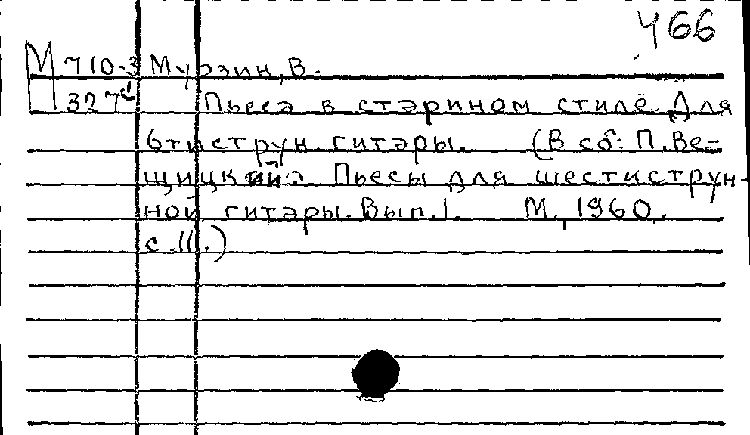 466
М 710-3 Мурзин, В.
327 Пьеса в старином стиле. Для
6тиструн. гитары. (В сб: П. Ве=
щицкий. Пьесы для шестиструн-
ной гитары. Вып. 1. М., 1960.
с. 11.)